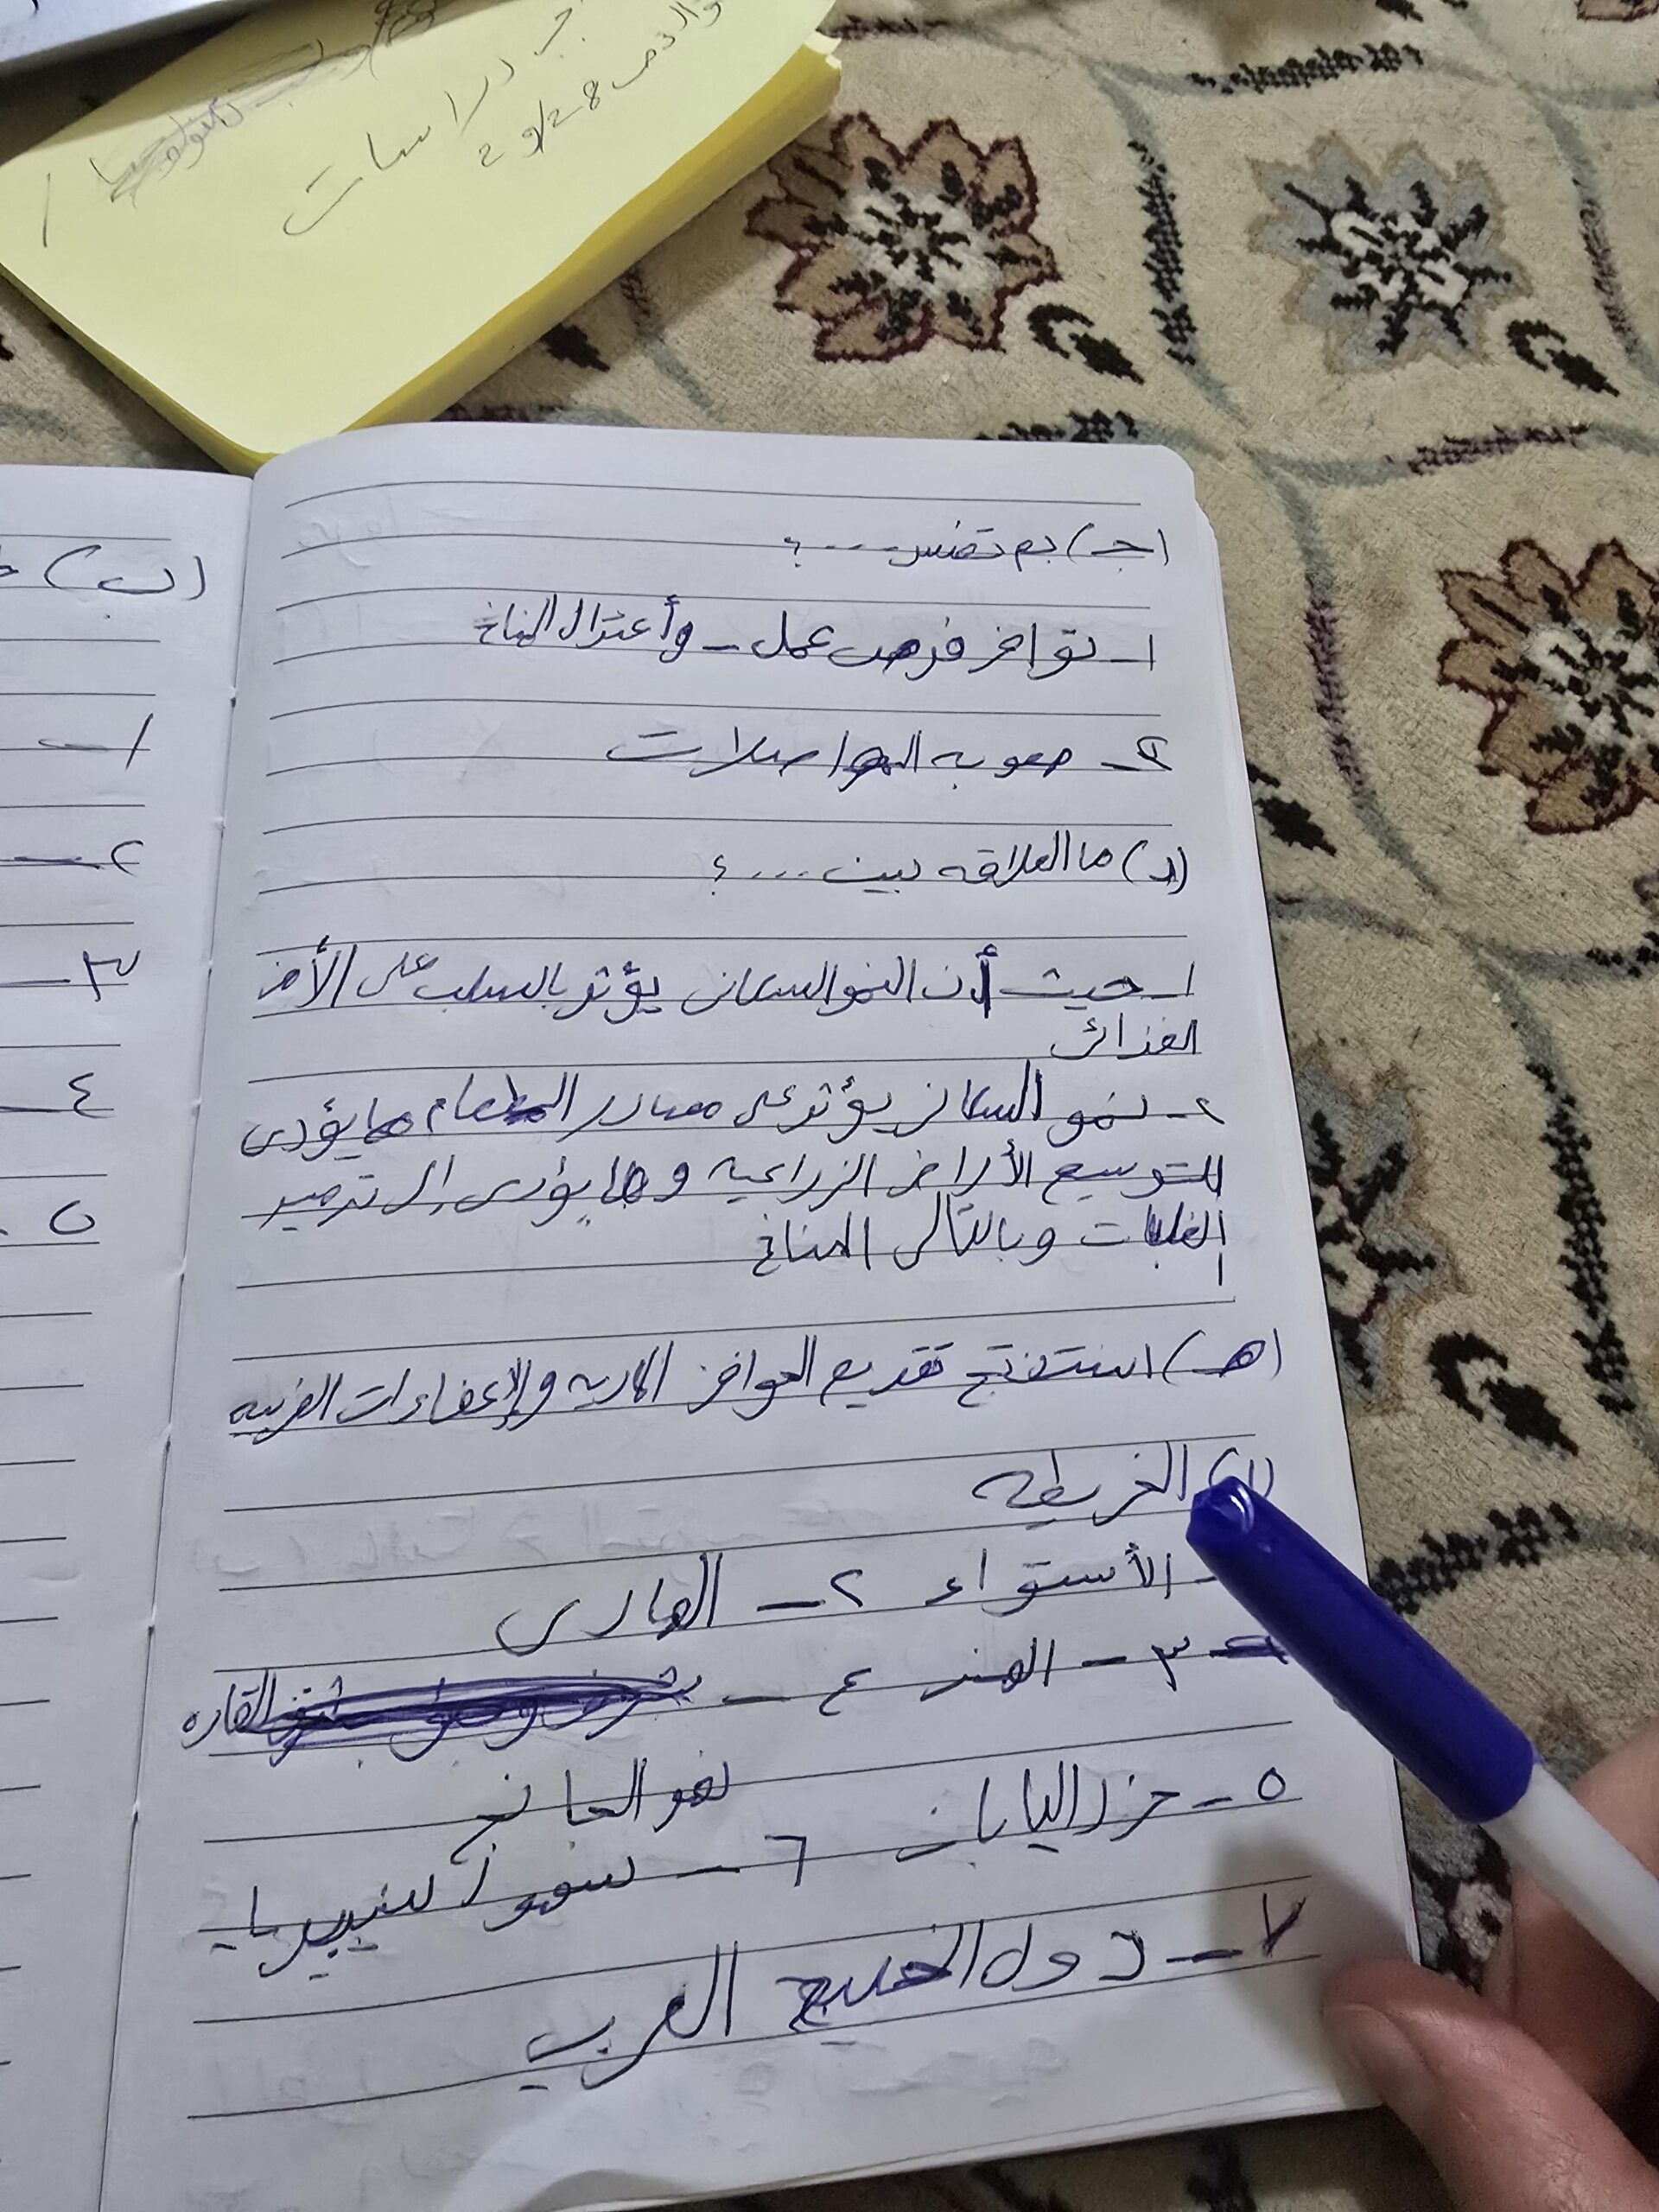 دراسات
(ب)
١-
٢-
٣-
٤-
٥-
(جـ) بم تفسر .... ؟
١- توافر فرص عمل - وأعتدال المناخ
٢- صعوبه المواصلات
(د) ما العلاقه بين .... ؟
١- حيث أن النمو السكانى يؤثر بالسلب على الأمن
الغذائى
٢- نمو السكان يؤثر على مصادر الطعام مما يؤدى
للتوسيع الأراضى الزراعيه ومما يؤدى إلى تدمير
الغابات وبالتالى المناخ
(هـ) استنتج تقديم الحوافز الماديه والإعفاءات الضريبيه
الخريطه
الأستواء ٢- الهادى
٣- الهند ٤- القاره
نهر الجانج
٥- جزر اليابان ٦- سهول سيبيريا
٧- دول الخليج العربى